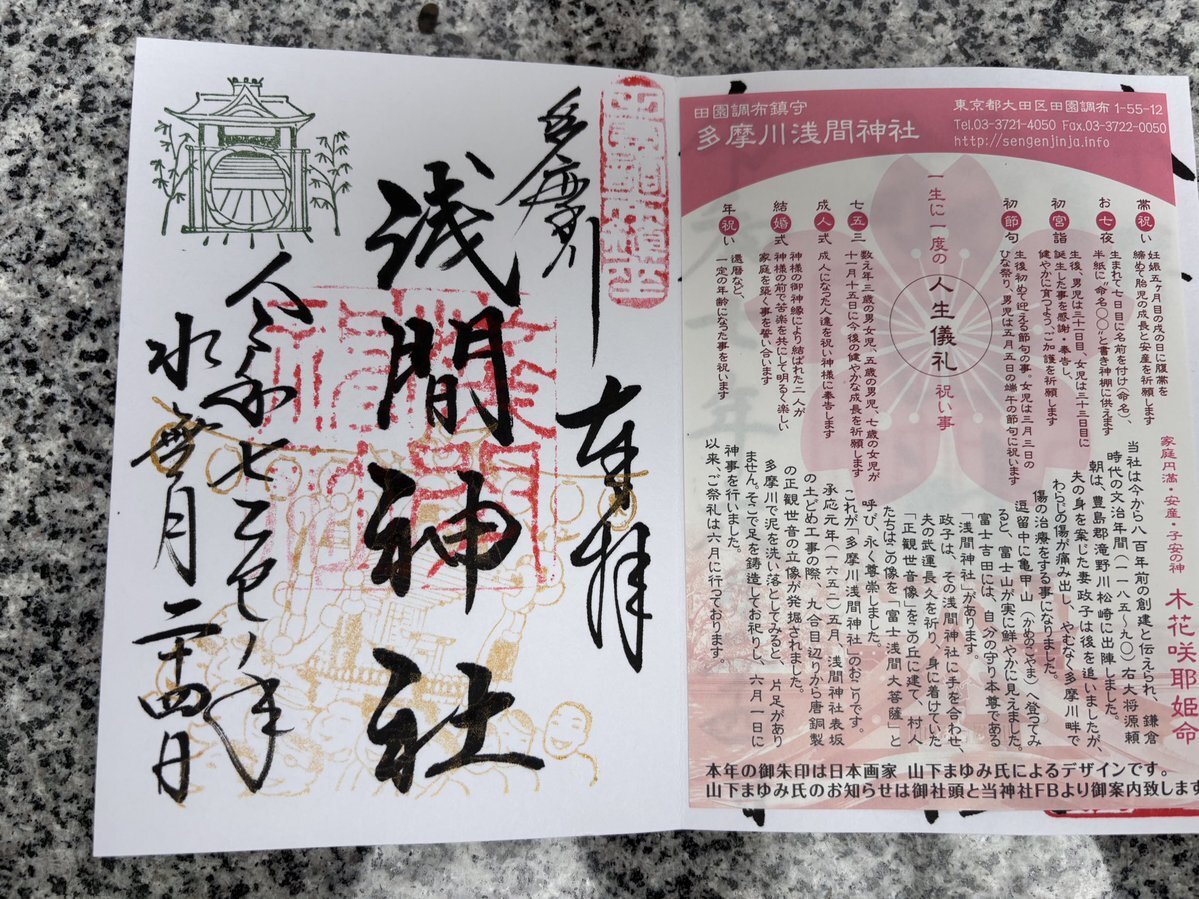 奉拝
多摩川
浅間神社
令和七乙巳ノ年
水無月二十四日
田園調布鎮守
多摩川浅間神社
東京都大田区田園調布 1-55-12
Tel.03-3721-4050 Fax.03-3722-0050
http://sengenjinja.info
一生に一度の 人生儀礼 祝い事
帯祝い
妊娠五ヶ月目の戌の日に腹帯を
締めて胎児の成長と安産を祈願します
お七夜
生まれて七日目に名前を付け(命名)、
半紙に“命名〇〇”と書き神棚に供えます
初宮詣
生後、男児は三十一日目、女児は三十三日目に
誕生した事を感謝・奉告し、
健やかに育つよう、ご加護を祈願します
初節句
生後初めて迎える節句の事。女児は三月三日の
ひな祭り、男児は五月五日の端午の節句に祝います
七五三
数え年三歳の男女児、五歳の男児、七歳の女児が
十一月十五日に今後の健やかな成長を祈願します
成人式
成人になった人達を祝い神様に奉告します
結婚式
神様の御神縁により結ばれた二人が
神様の前で苦楽を共にして明るく楽しい
家庭を築く事を誓い合います
年祝い
還暦など、
一定の年齢になった事を祝います
家庭円満・安産・子安の神 木花咲耶姫命
当社は今から八百年前の創建と伝えられ、鎌倉
時代の文治年間(一一八五〜九〇)右大将源頼
朝は、豊島郡滝野川松崎に出陣しました。
夫の身を案じた妻政子は後を追いましたが、
わらじの傷が痛み出し、やむなく多摩川畔で
傷の治療をする事になりました。
逗留中に亀甲山(かめのこやま)へ登ってみ
ると、富士山が実に鮮やかに見えました。
富士吉田には、自分の守り本尊である
「浅間神社」があります。
政子は、その浅間神社に手を合わせ、
夫の武運長久を祈り、身に着けていた
「正観世音像」をこの丘に建て、村人
たちはこの像を「富士浅間大菩薩」と
呼び、永く尊崇しました。
これが「多摩川浅間神社」のおこりです。
承応元年(一六五二)五月、浅間神社表坂
の土どめ工事の際、九合目辺りから唐銅製
の正観世音の立像が発掘されました。
多摩川で泥を洗い落としてみると、片足があり
ません。そこで足を鋳造してお祀りし、六月一日に
神事を行いました。
以来、ご祭礼は六月に行っております。
本年の御朱印は日本画家 山下まゆみ氏によるデザインです。
山下まゆみ氏のお知らせは御社頭と当神社FBより御案内致します